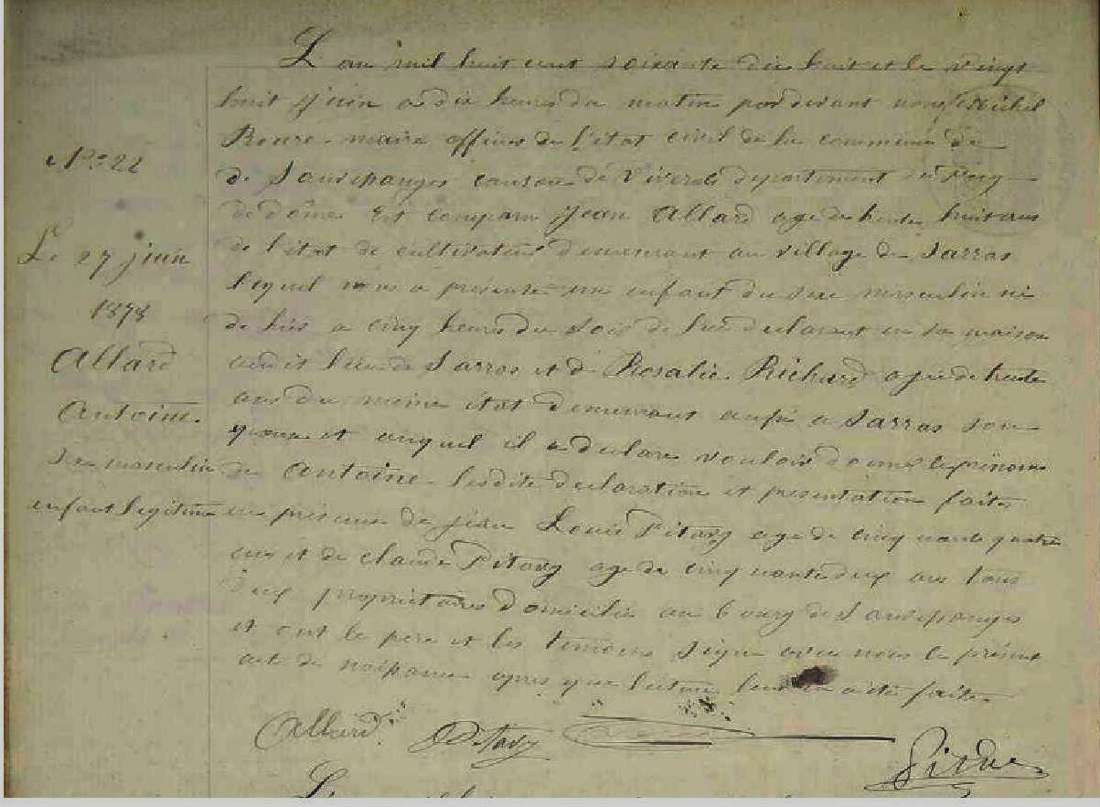 No 22
Le 27 juin
1878
Allard
Antoine.
Sexe masculin
enfant legitime
L an mil huit cent soixante dix huit et le vingt
huit juin a dix heures du matin par devant nous Michel
maire officier de l'état civil de la commune de
de Sauvessanges canton de Viverols departement du Puy
de dôme Est comparu Jean Allard age de trente huit ans
de l'état de cultivateur demeurant au village de Sarras
lequel nous a présenté un enfant du sexe masculin né
de hier a cinq heures du soir de lui declarant en sa maison
audit lieu de Sarras et de Rosalie Richard agée de trente
ans du meme etat demeurant aussi a Sarras son
et auquel il a declaré vouloir donner le prénom
de Antoine lesdite declaration et presentation faites
en presence de jean Louis Pitavy age de cinquante quatre
ans et de claude Pitavy age de cinquante deux ans tous
deux propriétaires domicilié au bourg de Sauvessanges
et ont le pere et les temoins signe avec nous le présent
acte de naissance apres que lecture leur en a été faite
Allard Pitavy